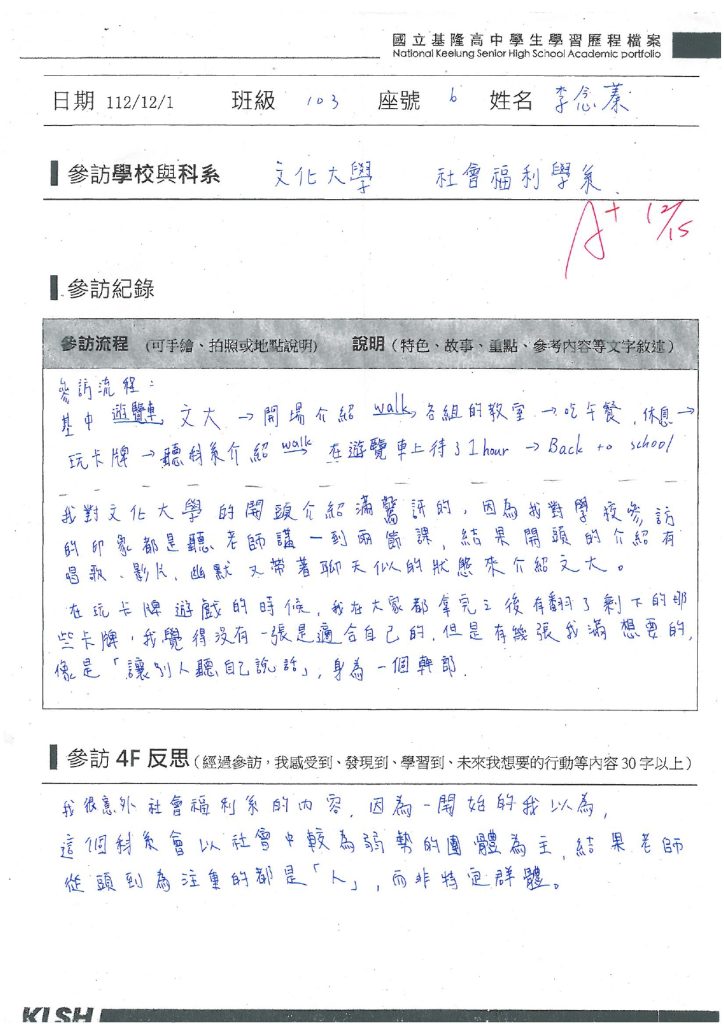 國立基隆高中學生學習歷程檔案
National Keelung Senior High School Academic portfolio
日期 112/12/1 班級 103 座號 6 姓名 李念蓁
參訪學校與科系 文化大學 社會福利學系
A+ 12/15
參訪紀錄
參訪流程 (可手繪、拍照或地點說明) 說明 (特色、故事、重點、參考內容等文字敘述)
參訪流程:
基中 遊覽車 文大 → 開場介紹 walk 各組的教室 → 吃午餐, 休息 →
玩卡牌 → 聽科系介紹 walk 在遊覽車上待了1hour → Back to school
我對文化大學的開頭介紹滿驚訝的,因為我對學校參訪
的印象都是聽老師講一到兩節課,結果開頭的介紹有
唱歌、影片,幽默又帶著聊天似的狀態來介紹文大。
在玩卡牌遊戲的時候,我在大家都拿完之後有翻了剩下的那
些卡牌,我覺得沒有一張是適合自己的,但是有幾張我滿想要的,
像是「讓別人聽自己說話」,身為一個幹部.
參訪 4F 反思 (經過參訪,我感受到、發現到、學習到、未來我想要的行動等內容 30 字以上)
我很意外社會福利系的內容,因為一開始的我以為,
這個科系會以社會中較為弱勢的團體為主,結果老師
從頭到為注重的都是「人」,而非特定群體。
KLSH